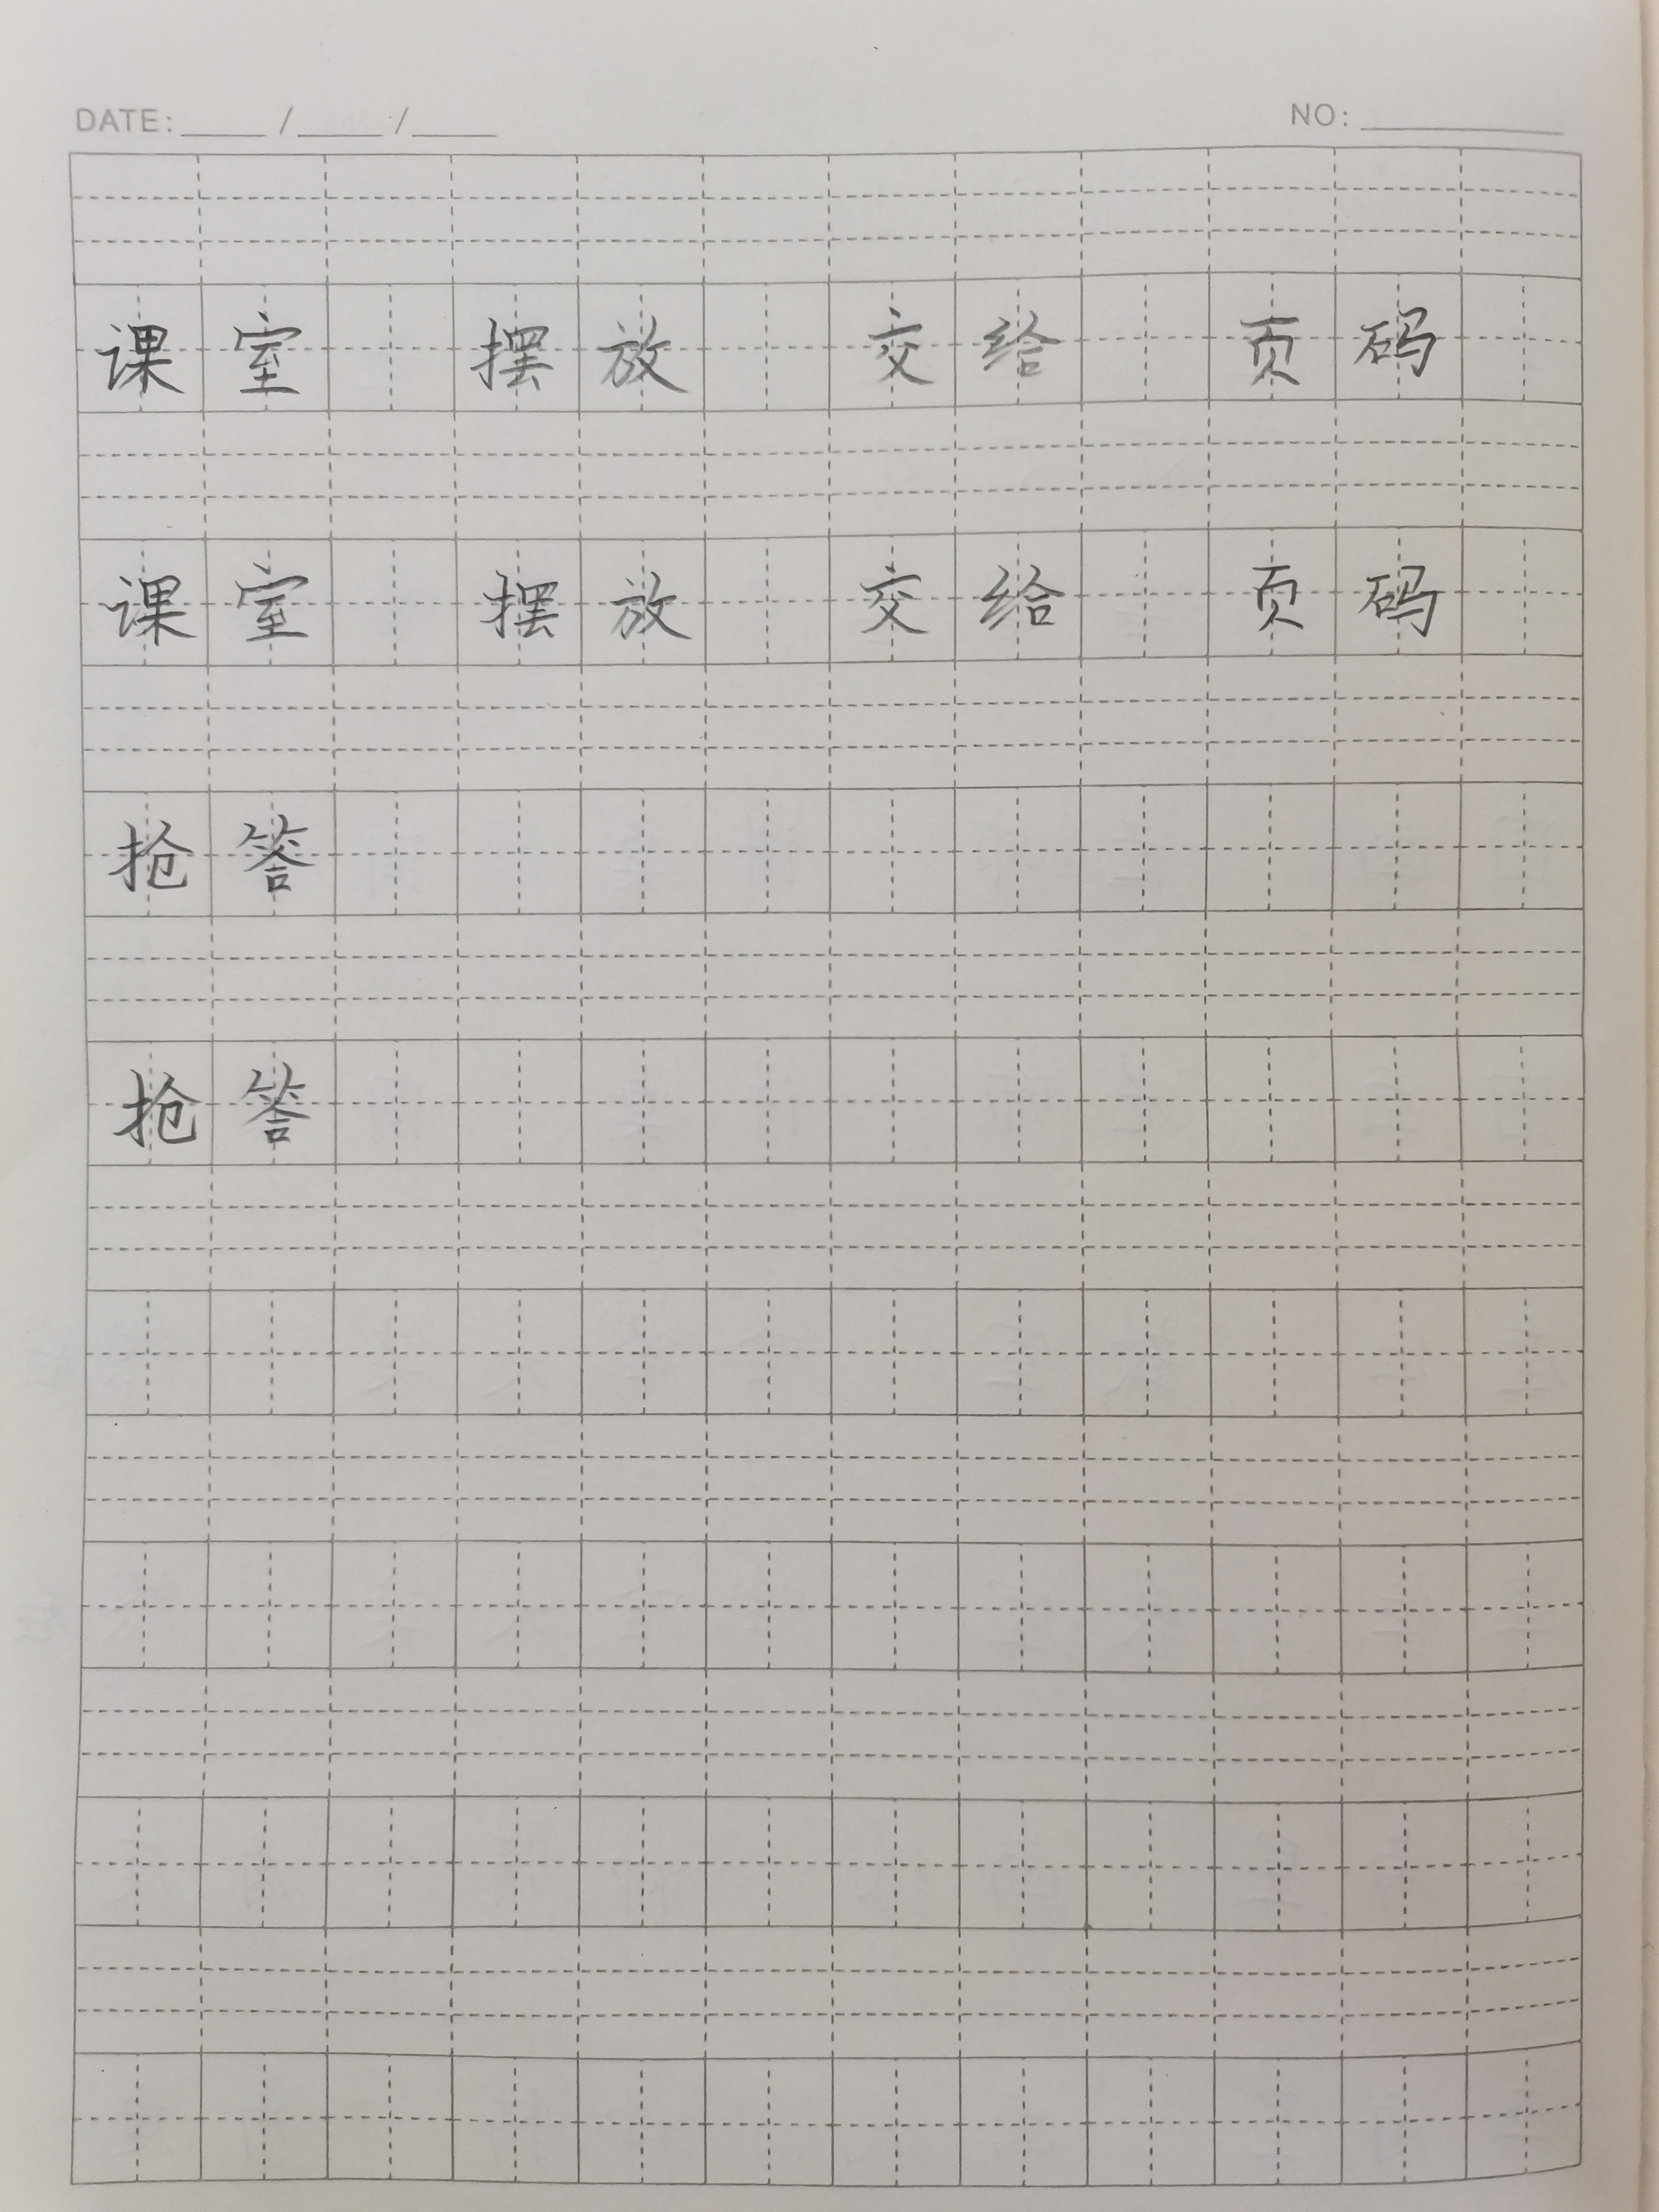 DATE: ____ / ____ / ____ NO: ________
课室 摆放 交给 页码
课室 摆放 交给 页码
抢答
抢答